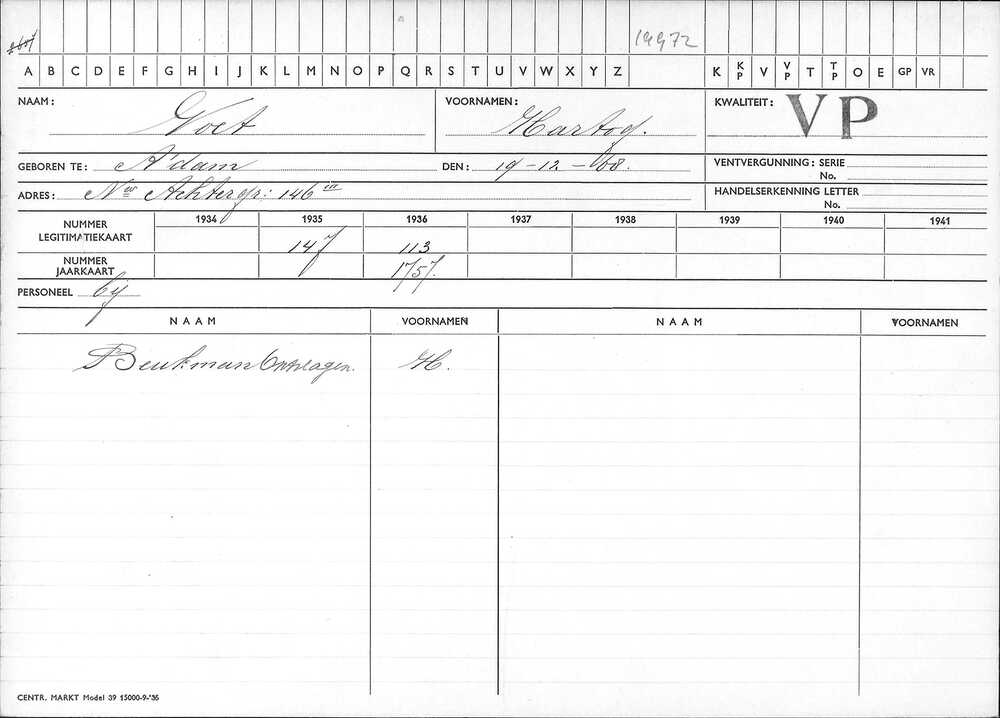 19972
A B C D E F G H I J K L M N O P Q R S T U V W X Y Z K KP V VP T TP O E GP VR
NAAM: Voet VOORNAMEN: Hartog. KWALITEIT: VP
GEBOREN TE: A'dam DEN: 19-12-08. VENTVERGUNNING: SERIE
No.
ADRES: Nwe Achtergr: 146 III HANDELSERKENNING LETTER
No.
1934 1935 1936 1937 1938 1939 1940 1941
NUMMER LEGITIMATIEKAART 147 113
NUMMER JAARKAART 1757.
PERSONEEL by
NAAM VOORNAMEN NAAM VOORNAMEN
Beukman H.
CENTR. MARKT Model 39 15000-9-'36